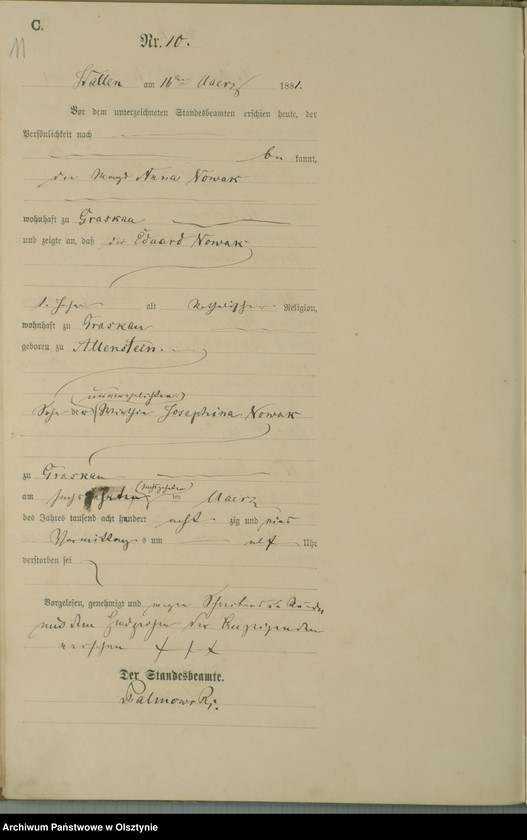 C.
11
Nr. 10.
Wallen am 16ten Maerz 1881.
Vor dem unterzeichneten Standesbeamten erschien heute, der
Persönlichkeit nach
be kannt,
die Magd Anna Nowak
wohnhaft zu Graskau
und zeigte an, daß der Eduard Nowak
1. Jahr alt katholischer Religion,
wohnhaft zu Graskau
geboren zu Allenstein.
(unverehelichten)
Sohn der Wirthin Josephina Nowak
zu Graskau
(sechszehnten)
am im Maerz
des Jahres tausend acht hundert acht zig und eins
Vormittags um elf Uhr
verstorben sei
Vorgelesen, genehmigt und wegen Schreibensunkunde
mit dem Handzeichen der Anzeigenden
versehen + + +
Der Standesbeamte.
Archiwum Państwowe w Olsztynie